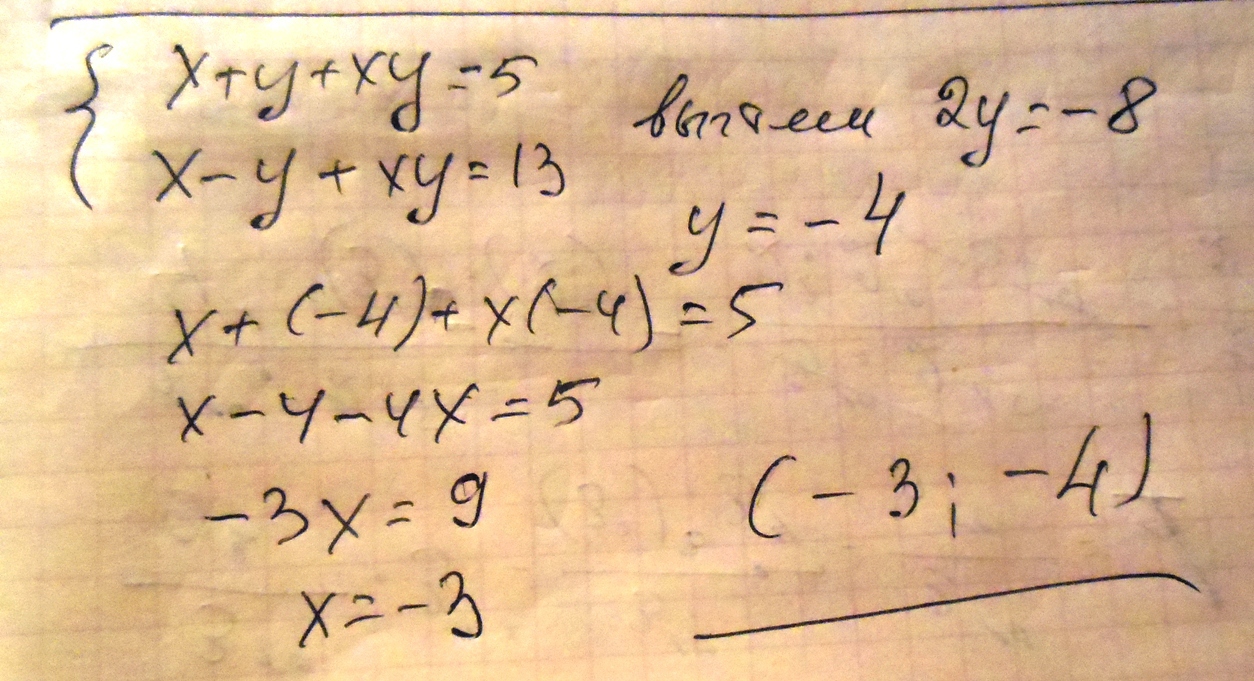 { x+y+xy=5
x-y+xy=13
вычтем 2y=-8
y=-4
x+(-4)+x(-4)=5
x-4-4x=5
-3x=9
x=-3
(-3;-4)